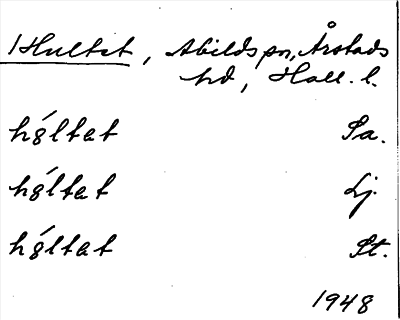 Hultet, Abilds sn, Årstads
hd, Hall. l.
hó̤ltat Sa.
hó̤ltat Lj.
hó̤ltat St.
1948